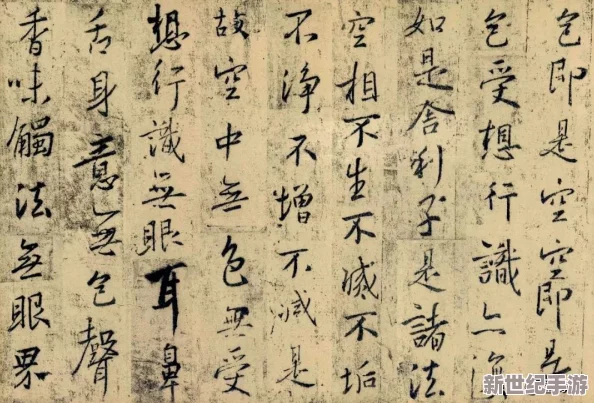 色即是空空即是
色受想行識亦復
如是舍利子是諸法
空相不生不滅不垢
不淨不增不減是
故空中無色無受
想行識無眼耳鼻
舌身意無色聲
香味觸法無眼界
新世纪手游